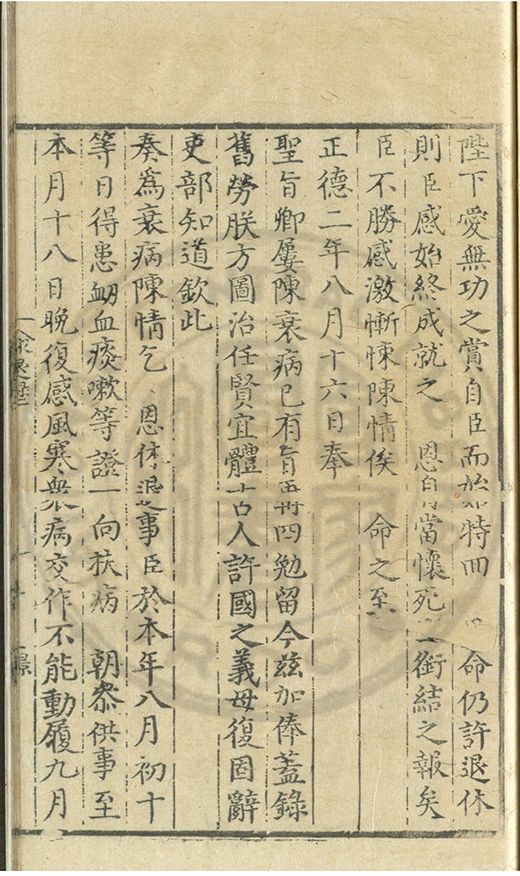 陛下愛無功之賞自臣而始特回 命仍許退休
則臣感始終成就之 恩 當懷死 銜結之報矣
臣不勝感激慚悚陳情俟 命之至
正德二年八月十六日奉
聖旨卿屢陳衰病已有旨再四勉留今茲加俸蓋錄
舊勞朕方圖治任賢宜體古人許國之義毋復固辭
吏部知道欽此
奏為衰病陳情乞 恩休退事臣於本年八月初十
等日得患衂血痰嗽等證一向扶病 朝叅供事至
本月十八日晚復感風寒衆病交作不能動履九月